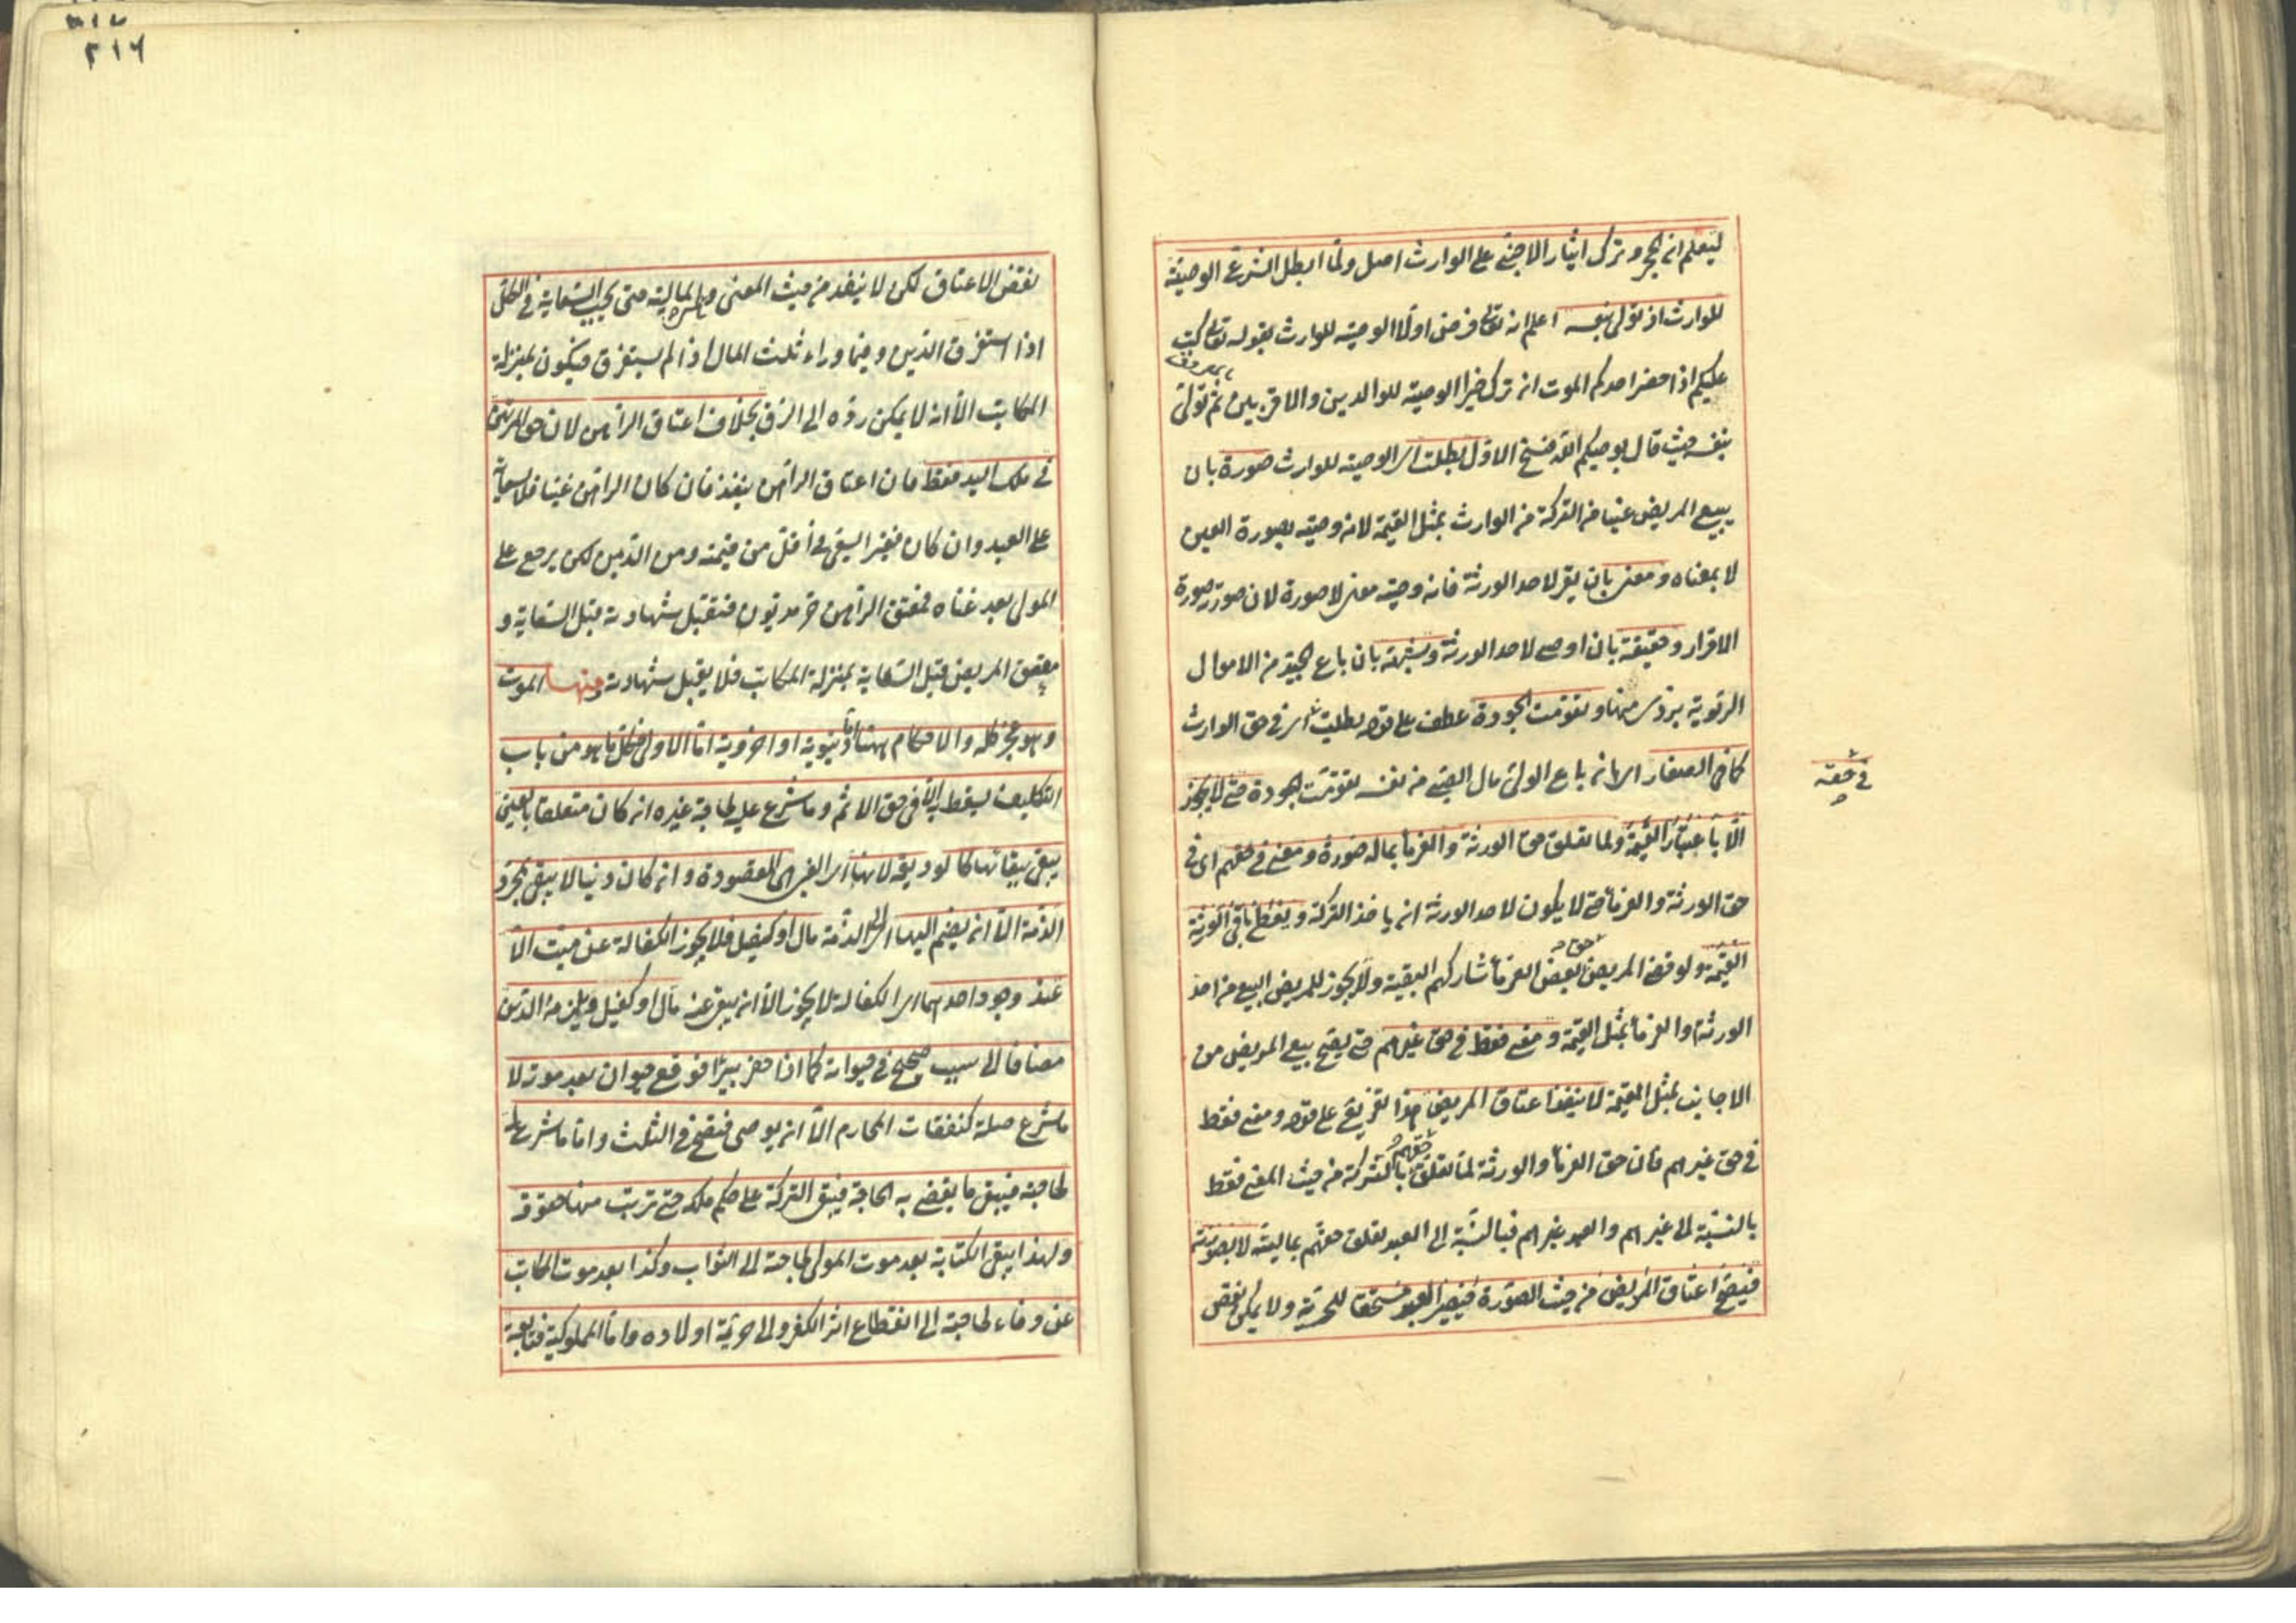 ليعلم ان الحجر وترك ايثار الاجنبي على الوارث اصل ولما ابطل الشرع الوصية
للوارث اذ تولى بنفسه اعلم انه تعالى فرض اولا الوصية للوارث بقوله تعالى كتب
عليكم اذا حضر احدكم الموت ان ترك خيرا الوصية للوالدين والاقربين بالمعروف ثم تولى
بنفسه حيث قال يوصيكم الله فنسخ الاول بطلت اى الوصية للوارث صورة بان
يبيع المريض عينا من التركة من الوارث بمثل القيمة لانه وصية بصورة العين
لا بمعناه ومعنى بان يقر لاحد الورثة فانه وصية معنى لا صورة لان صورته صورة
الاقرار وحقيقة بان اوصى لاحد الورثة وشبهة بان باع الجيد من الاموال
الربوية بردى منها وتقومت الجودة عطف على قوله بطلت اى فى حق الوارث
فى حقه
كما فى الصغار اى ان باع الولى مال الصبى من نفسه تقومت الجودة حتى لا يجوز
الا باعتبار القيمة ولما تعلق حق الورثة والغرماء بماله صورة ومعنى فى حقهم اى فى
حق الورثة والغرماء حتى لا يكون لاحد الورثة ان ياخذ التركة ويعطى باقى الورثة
القيمة ولو قضى المريض حق بعض الغرماء شاركهم البقية ولا يجوز للمريض البيع من احد
الورثة والغرماء بمثل القيمة ومعنى فقط فى حق غيرهم حتى يصح بيع المريض من
الاجانب بمثل القيمة لا ينفذ اعتاق المريض هذا تفريع على قوله ومعنى فقط
فى حق غيرهم فان حق الغرماء والورثة لما تعلق حقهم بالتركة من حيث المعنى فقط
بالنسبة الى غيرهم والعبد غيرهم فبالنسبة الى العبد تعلق حقهم بماليته لا بصورته
فيصح اعتاق المريض من حيث الصورة فيصير العبد مستحقا للحرية ولا يمكن نقض
٣١٦
نقض الاعتاق لكن لا ينفذ من حيث المعنى والمالية حتى يجب السعاية فى الكل
اذا استغرق الدين وفيما وراء ثلث المال اذا لم يستغرق فيكون بمنزلة
المكاتب الا انه لا يمكن رده الى الرق بخلاف اعتاق الراهن لان حق المرتهن
فى ملك اليد فقط فان اعتاق الراهن ينفذ فان كان الراهن غنيا فلا سعاية
على العبد وان كان فقيرا يسعى فى اقل من قيمته ومن الدين لكن يرجع على
المولى بعد غناه فمعتق الراهن حر مديون فتقبل شهادته قبل السعاية و
معتق المريض قبل السعاية بمنزلة المكاتب فلا يقبل شهادته ومنها الموت
وهو عجز كله والاحكام هنا اما دنيوية او اخروية اما الاولى فكل ما هو من باب
التكليف يسقط الا فى حق الاثم وما شرع عليه لحاجة غيره ان كان متعلقا بالعين
يبقى ببقائها كالوديعة لانها اى العين هى المقصودة وان كان دينا لا يبقى بمجرد
الذمة الا ان يضم اليها اى الى الذمة مال او كفيل فلا يجوز الكفالة عن ميت الا
عند وجود احدهما اى الكفالة لا يجوز الا ان يبقى عنه مال او كفيل ويلزمه الدين
مضافا الى سبب صحيح فى حيوته كما اذا حفر بيرا فوقع حيوان بعد موته لا
ما شرع صلة كنفقات المحارم الا ان يوصى فتصح فى الثلث واما ما شرع له
لحاجته فيبقى ما يقضى به الحاجة فيبقى التركة على حكم ملكه حتى ترتب منها حقوقه
ولهذا يبقى الكتابة بعد موت المولى لحاجته الى الثواب وكذا بعد موت المكاتب
عن وفاء لحاجته الى انقطاع اثر الكفر والى حرية اولاده واما المملوكية فتابعة